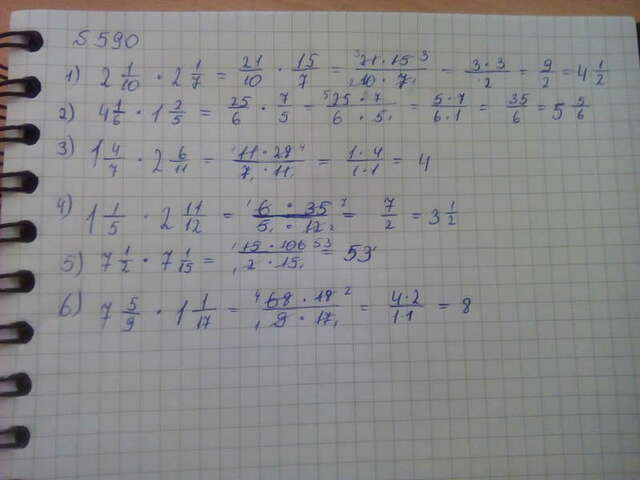 S 590
1) 2 1/10 · 2 1/7 = 21/10 · 15/7 = 21·15/10·7 = 3·3/2 = 9/2 = 4 1/2
2) 4 1/6 · 1 2/5 = 25/6 · 7/5 = 25·7/6·5 = 5·7/6·1 = 35/6 = 5 5/6
3) 1 4/7 · 2 6/11 = 11·28/7·11 = 1·4/1·1 = 4
4) 1 1/5 · 2 11/12 = 6·35/5·12 = 7/2 = 3 1/2
5) 7 1/2 · 7 1/15 = 15·106/2·15 = 53
6) 7 5/9 · 1 1/17 = 68·18/9·17 = 4·2/1·1 = 8